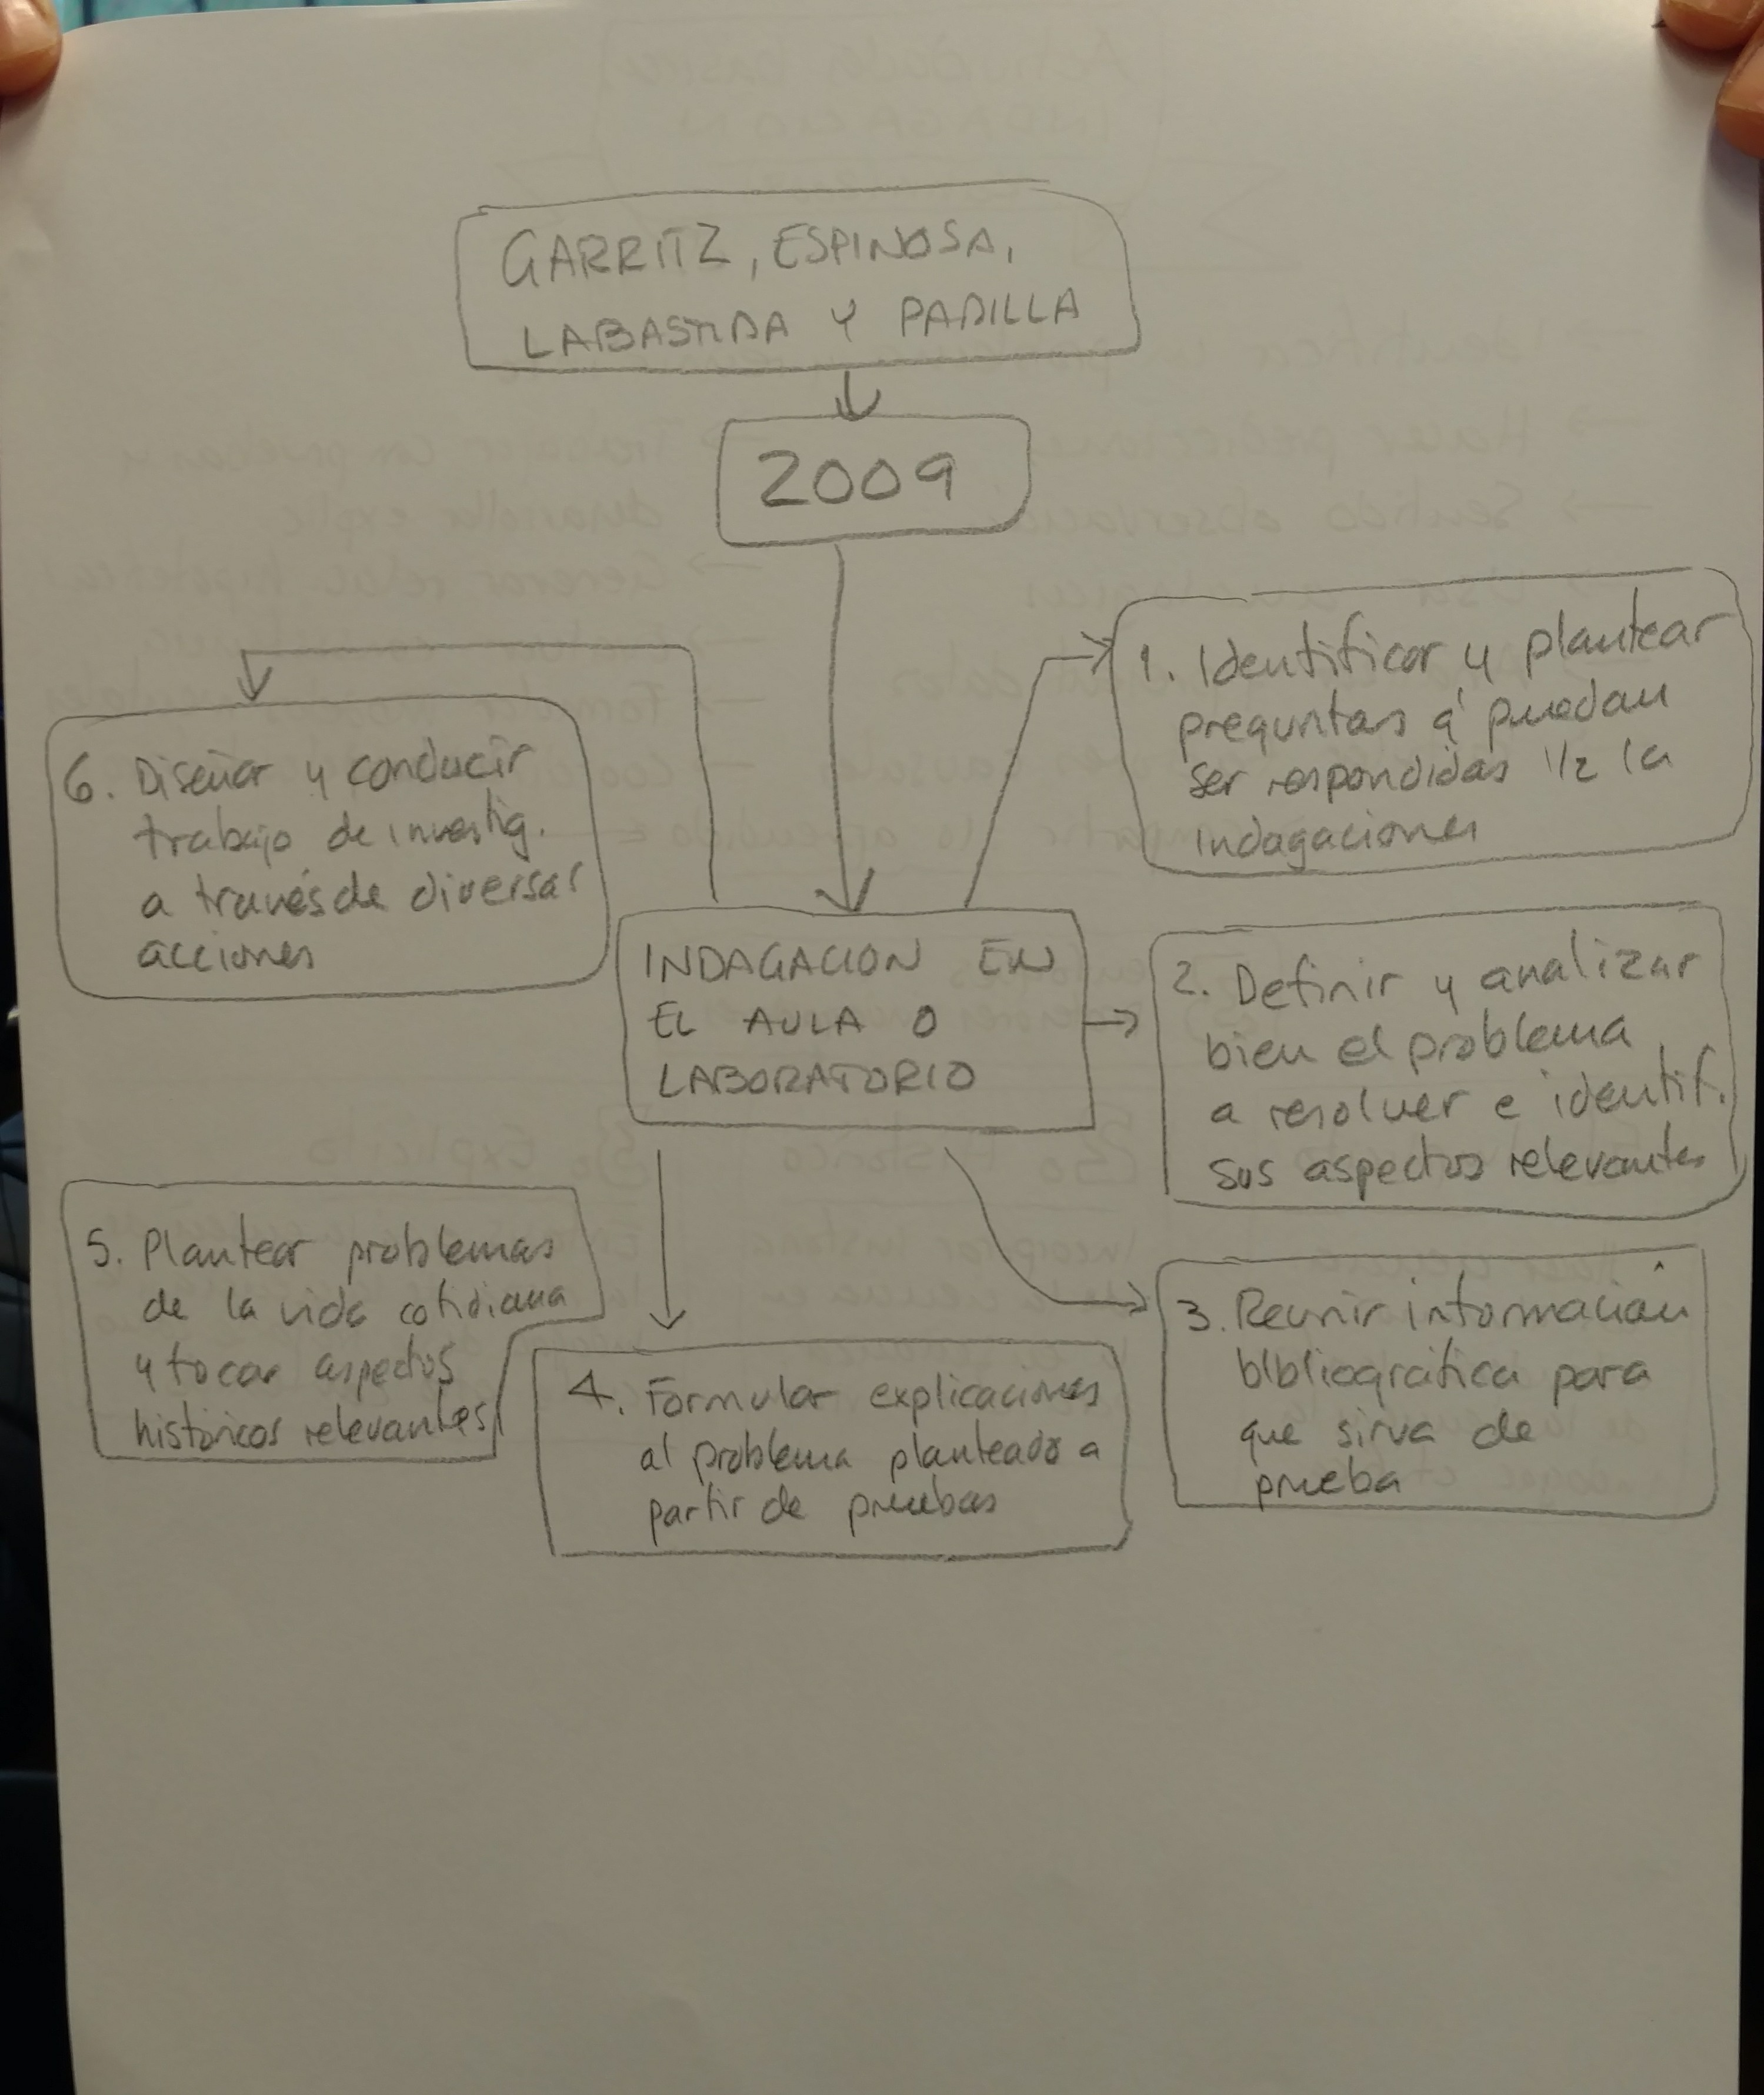 GARRITZ, ESPINOSA,
LABASTIDA Y PADILLA
2009
INDAGACION EN
EL AULA O
LABORATORIO
1. Identificar y plantear
preguntas q' puedan
ser respondidas 1/2 la
indagaciones
2. Definir y analizar
bien el problema
a resolver e identif.
sus aspectos relevantes
3. Reunir información
bibliográfica para
que sirva de
prueba
4. Formular explicaciones
al problema planteado a
partir de pruebas
5. Plantear problemas
de la vida cotidiana
y tocar aspectos
históricos relevantes
6. Diseñar y conducir
trabajo de investig.
a través de diversas
acciones